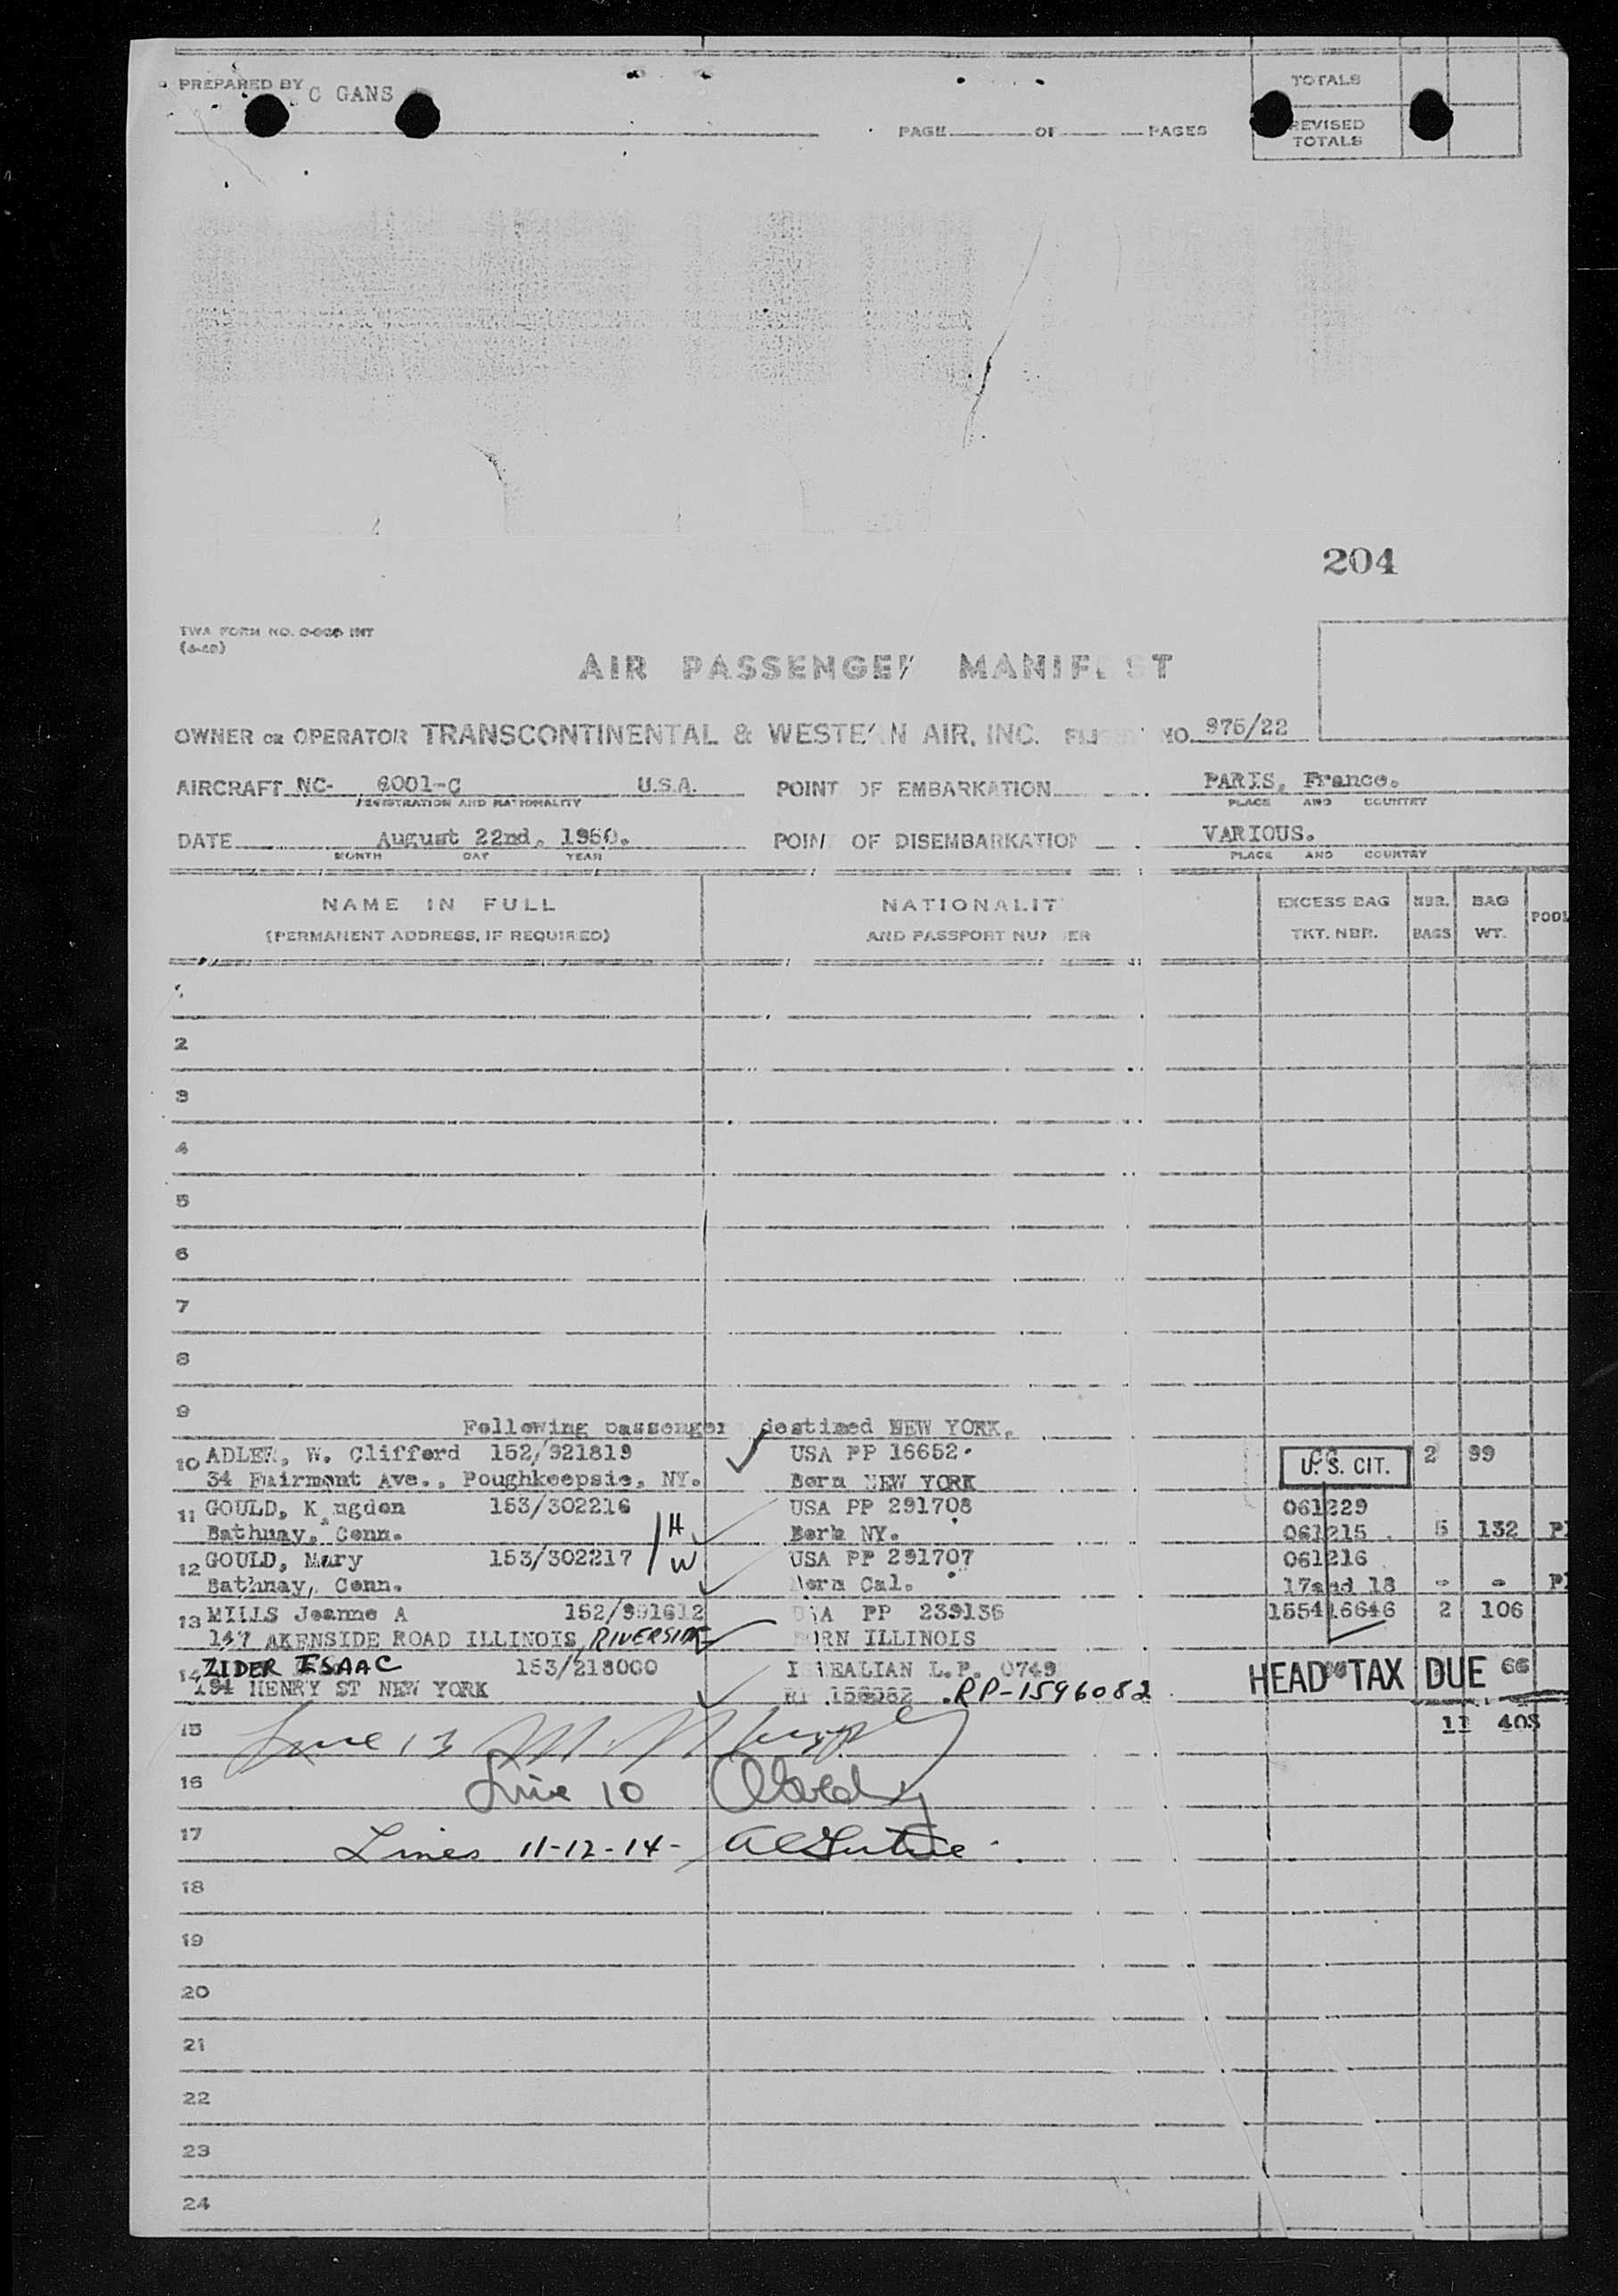 PREPARED BY C GANS
TOTALS
PAGE OF PAGES
REVISED TOTALS
204
TWA FORM NO. INT
AIR PASSENGER MANIFEST
OWNER OR OPERATOR TRANSCONTINENTAL & WESTERN AIR, INC. FLIGHT NO. 975/22
AIRCRAFT NC- 6001-C U.S.A. POINT OF EMBARKATION PARIS, France.
REGISTRATION AND NATIONALITY PLACE AND COUNTRY
DATE August 22nd, 1950. POINT OF DISEMBARKATION VARIOUS.
MONTH DAY YEAR PLACE AND COUNTRY
NAME IN FULL NATIONALIT EXCESS BAG NBR. BAG POOL
(PERMANENT ADDRESS, IF REQUIRED) AND PASSPORT NUMBER TKT. NBR. BAGS WT.
1
2
3
4
5
6
7
8
9
Following passenger destined NEW YORK.
10 ADLER, W. Clifford 152/921819 USA PP 16652. U.S. CIT. 2 99
34 Fairmont Ave., Poughkeepsie, NY. Born NEW YORK
11 GOULD, K ngdon 153/302216 USA PP 291708 061229
Bathnay, Conn. H Born NY. 061215 5 132 P
12 GOULD, Mary 153/302217 W USA PP 291707 061216
Bathnay, Conn. Born Cal. 17and 18 - - P
13 MILLS Jeanne A 152/991612 USA PP 239135 155416646 2 106
147 AKENSIDE ROAD ILLINOIS, RIVERSIDE BORN ILLINOIS
14 ZIDER ISAAC 153/218000 ISREALIAN L.P. 0749 HEAD TAX DUE 66
194 HENRY ST NEW YORK RP-1596082
15 Line 13 11 403
16 Line 10
17 Lines 11-12-14-
18
19
20
21
22
23
24